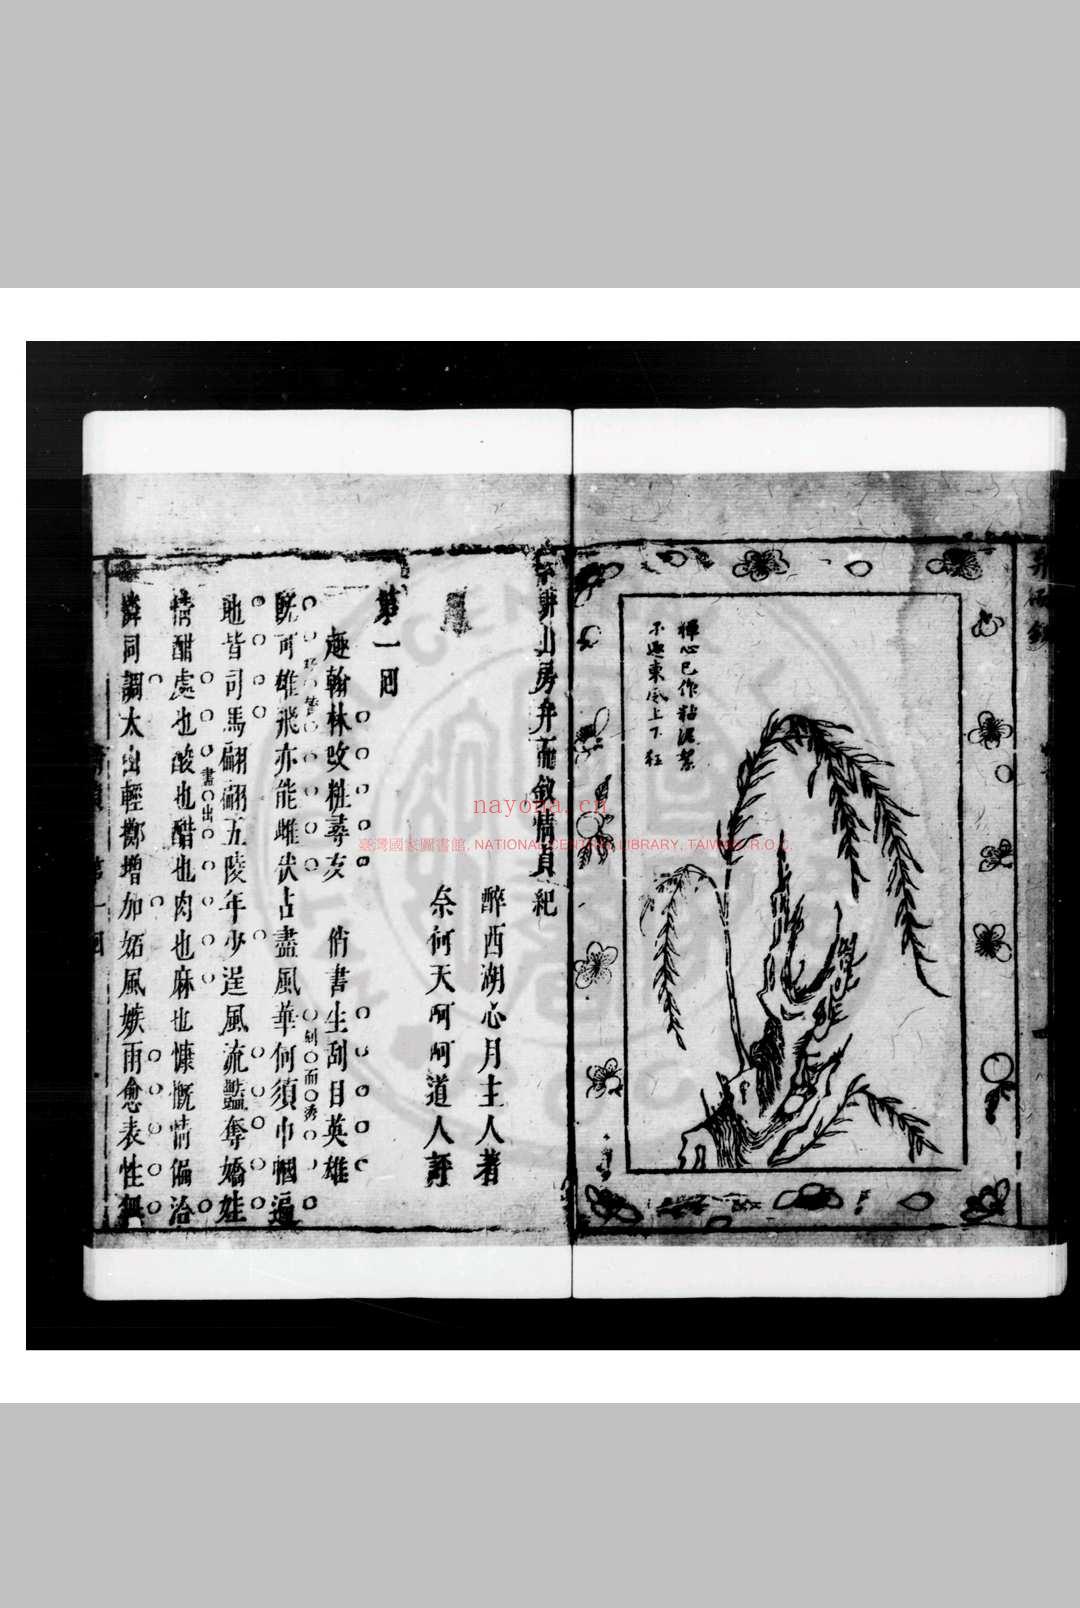 禪心已作粘泥絮
不逐東風上下狂
弁而釵
筆耕山房弁而釵情貞紀
醉西湖心月主人著
奈何天呵呵道人評
第一回
趣翰林改粧尋友 俏書生刮目英雄
既可雄飛亦能雌伏占盡風華何須巾幗遍
地皆司馬翩翩五陵年少逞風流豔奪嬌娃
情酣處也酸也醋也肉也麻也慷慨情偏洽
憐同調太山輕擲增加妬風嫉雨愈表性無
畫出
刻而秀
情貞 第一回
nayona.cn
臺灣國家圖書館, NATIONAL CENTRAL LIBRARY, TAIWAN, R.O.C.